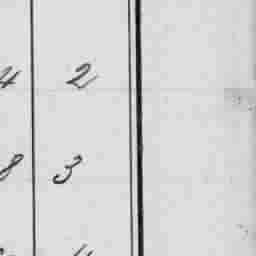 4 2
8 3